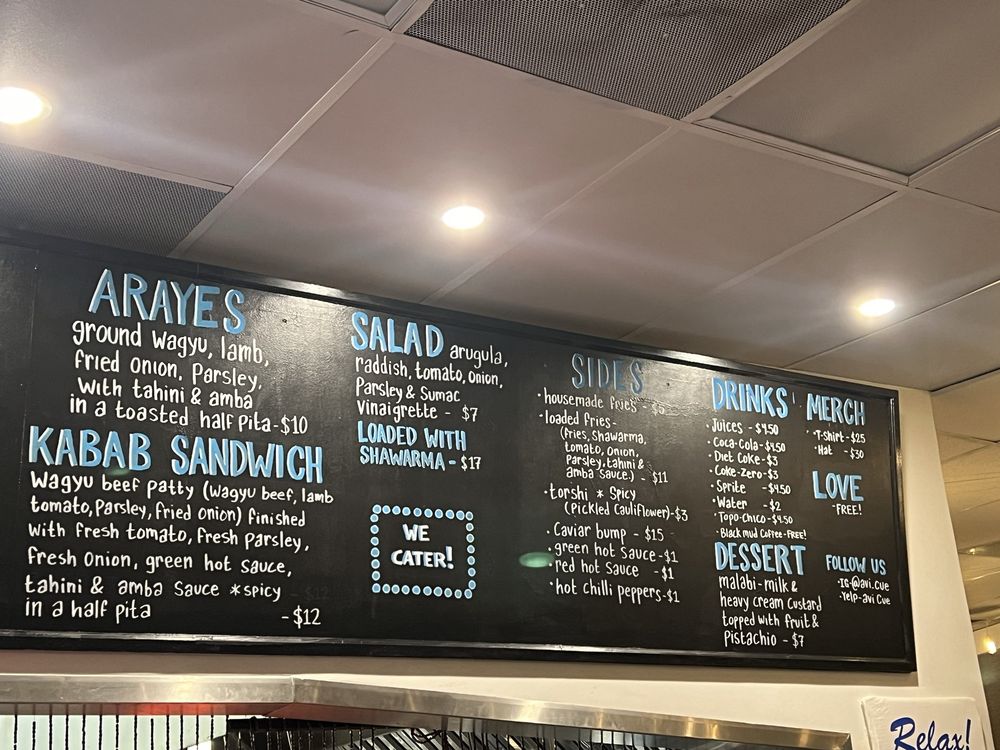 ARAYES
ground Wagyu, lamb,
fried onion, Parsley,
With tahini & amba
in a toasted half Pita-$10
KABAB SANDWICH
Wagyu beef patty (Wagyu beef, lamb
tomato, Parsley, fried onion) finished
with fresh tomato, fresh parsley,
fresh onion, green hot sauce,
tahini & amba Sauce *spicy
in a half pita - $12
SALAD arugula,
raddish, tomato, onion,
Parsley & Sumac
Vinaigrette - $7
LOADED WITH
SHAWARMA - $17
WE
CATER!
SIDES
·housemade fries - $5
·loaded fries-
(fries, shawarma,
tomato, onion,
Parsley, tahini &
amba sauce.) - $11
·torshi * Spicy
(Pickled Cauliflower)-$3
·Caviar bump - $15
·green hot Sauce-$1
·red hot Sauce -$1
·hot chilli peppers-$1
DRINKS
·Juices - $4.50
·Coca-Cola-$4.50
·Diet Coke-$3
·Coke-Zero-$3
·Sprite -$4.50
·Water -$2
·Topo-Chico-$4.50
·Black mud Coffee-FREE!
DESSERT
malabi-milk &
heavy cream custard
topped with fruit &
Pistachio - $7
MERCH
·T-Shirt-$25
·Hat -$30
LOVE
-FREE!
FOLLOW US
·IG-@avi.cue
·Yelp-avi Cue
Relax!